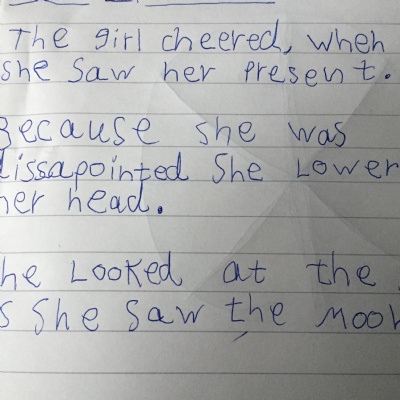 The girl cheered, when
she saw her present.
Because she was
dissapointed She Lower
her head.
he Looked at the
s She Saw the Moon